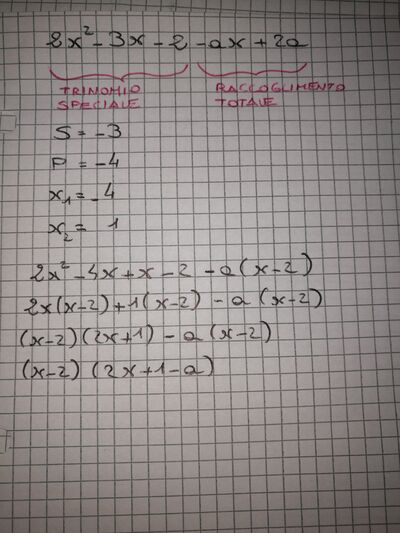 2x² - 3x - 2 - ax + 2a
TRINOMIO SPECIALE
RACCOGLIMENTO TOTALE
S = -3
P = -4
x₁ = -4
x₂ = 1
2x² - 4x + x - 2 - a(x-2)
2x(x-2) + 1(x-2) - a(x-2)
(x-2)(2x+1) - a(x-2)
(x-2)(2x+1-a)